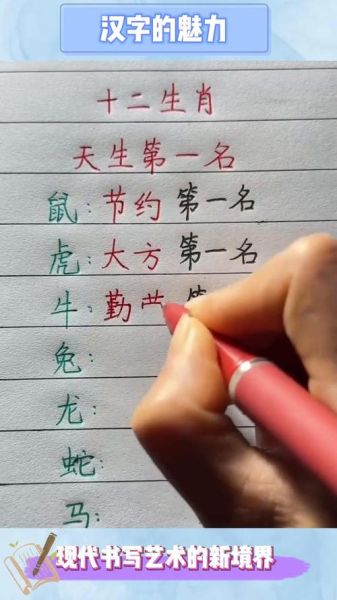 汉字的魅力
十二生肖
天生第一名
鼠：节约 第一名
虎：大方 第一名
牛：勤
兔：
龙：
蛇：
马：
现代书写艺术的新境界